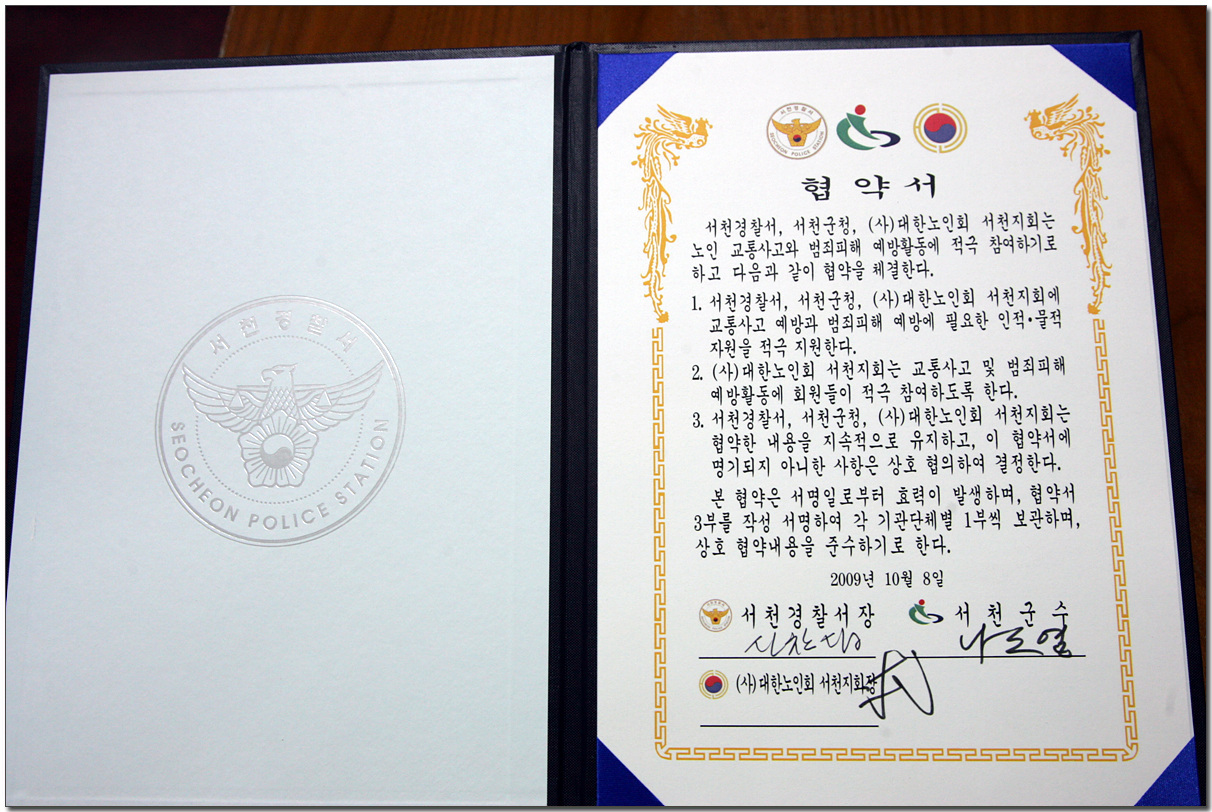 서천경찰서
SEOCHEON POLICE STATION
서천경찰서
SEOCHEON POLICE STATION
협약서
서천경찰서, 서천군청, (사)대한노인회 서천지회는
노인 교통사고와 범죄피해 예방활동에 적극 참여하기로
하고 다음과 같이 협약을 체결한다.
1. 서천경찰서, 서천군청, (사)대한노인회 서천지회에
교통사고 예방과 범죄피해 예방에 필요한 인적·물적
자원을 적극 지원한다.
2. (사)대한노인회 서천지회는 교통사고 및 범죄피해
예방활동에 회원들이 적극 참여하도록 한다.
3. 서천경찰서, 서천군청, (사)대한노인회 서천지회는
협약한 내용을 지속적으로 유지하고, 이 협약서에
명기되지 아니한 사항은 상호 협의하여 결정한다.
본 협약은 서명일로부터 효력이 발생하며, 협약서
3부를 작성 서명하여 각 기관단체별 1부씩 보관하며,
상호 협약내용을 준수하기로 한다.
2009년 10월 8일
서천경찰서장
서천군수
나소열
(사)대한노인회 서천지회장